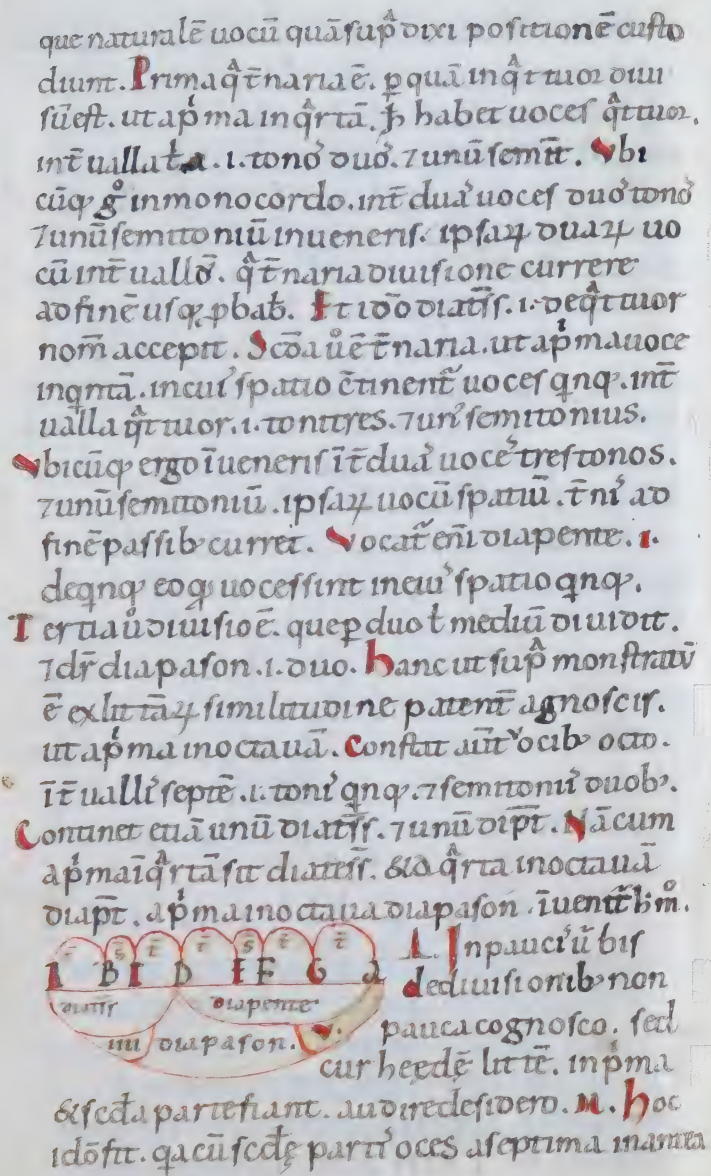 que naturalē uocū quā supᵃ dixi positionē custo
diunt. Prima qᵃt̄naria ē. ꝑ quā in qᵃttuor diui
sū est. ut a pⁱma in qᵃrtā. ħ habet uoces qᵃttuor.
int̄ualla .i. tonoˀ duoˀ. ⁊ unū semit̄. Vbi
cūqꝫ gᵒ in monocordo. int̄ duaˀ uoces duoˀ tonoˀ
⁊ unū semitoniū inueneris. ipsaꝝ duaꝝ uo
cū int̄uallū. qᵃt̄naria diuisione currere
ad finē usqꝫ ꝓbab̄. Et idō diatss̄. i. de qᵃttuor
nom̄ accepit. Scd̄a ů ē t̄naria. ut a pⁱma uoce
in qntā. in cuiˀ spatio c̄tinent᷑ uoces qnqꝫ. int̄
ualla qᵃttuor. i. toni tres. ⁊ unˀ semitonius.
Vbicūqꝫ ergo īueneris īt̄ duaˀ uoceˀ tres tonos.
⁊ unū semitoniū. ipsaꝝ uocū spatiū. t̄niˀ ad
finē passibꝫ curret. Vocat᷑ eni diapente. i.
de qnqꝫ eo qđ uoces sint in eiuˀ spatio qnqꝫ.
Tertia ů diuisio ē. que ꝑ duo ł mediū diuidit.
⁊ dr̄ diapason .i. duo. Hanc ut supᵃ monstratū
ē ex litt̄aꝝ similitudine patent̄ agnoscis.
ut a pⁱma in octauā. Constat aūt uocibꝫ octo.
īt̄uallˀ septē .i. toniˀ qnqꝫ. ⁊ semitoniiˀ duobˀ.
Continet etiā unū diatss̄. ⁊ unū dipt̄. Nā cum
a pⁱma ī qᵃrtā sit diatess̄. & a qᵃrta in octauā
diapt̄. a pⁱma in octaua diapason īuenit᷑ hᵒm.
t̄ s̄ t̄ t̄ s̄ t̄ t̄
A B C D E F G a
diatss̄ diapente
iiii diapason. v.
Δ. In pauciˀ ů bis
de diuisionibꝫ non
pauca cognosco. sed
cur hęędē litt̄e. in pⁱma
& scd̄a parte fiant. audire desidero. M. Hoc
idō fit. qa cū scd̄ę partiˀ oces a septima in